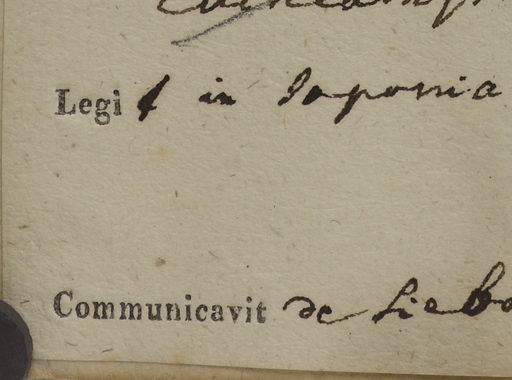 Legit in Japonia
Communicavit de Siebo